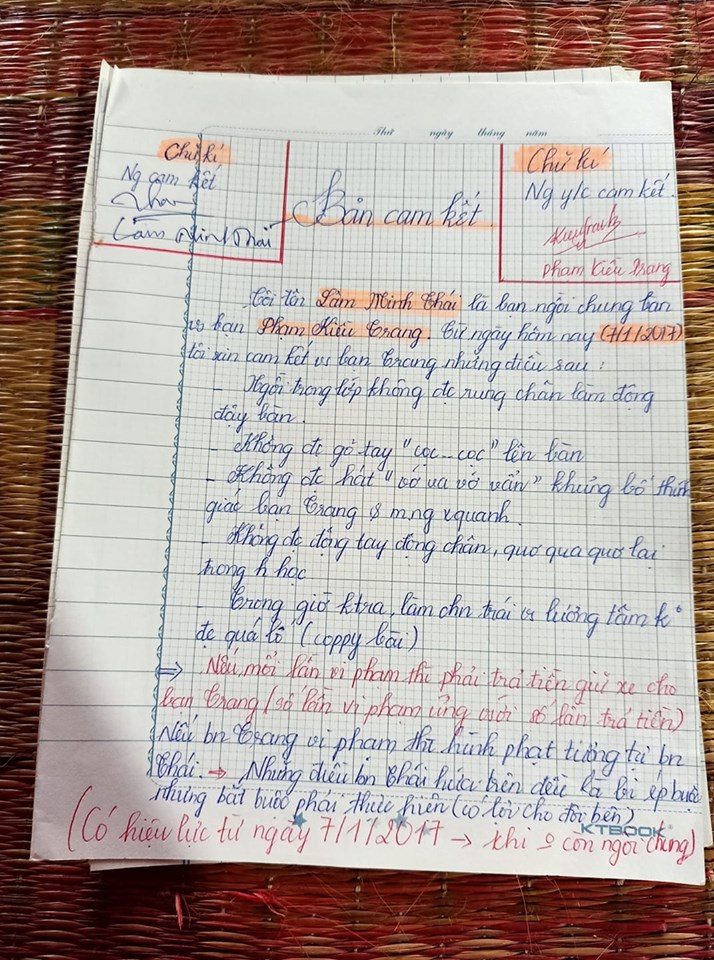 Thứ ngày tháng năm
Chữ kí
Ng cam kết
Lâm Minh Thái
Bản cam kết
Chữ kí
Ng y/c cam kết.
Phạm Kiều Trang
Tôi tên Lâm Minh Thái là bạn ngồi chung bàn
vs bạn Phạm Kiều Trang. Từ ngày hôm nay (7/1/2017)
tôi xin cam kết vs bạn Trang những điều sau:
- Ngồi trong lớp không đc rung chân làm động
đậy bàn.
- Không đc gõ tay "cọc...cọc" lên bàn
- Không đc hát "vớ va vớ vẩn" khủng bố thính
giác bạn Trang & m.ng xquanh.
- Không đc động tay động chân, quơ qua quơ lại
trong h học
- Trong giờ ktra, làm chn trái vs lương tâm k
đc quá lố (coppy bài)
⇒ Nếu, mỗi lần vi phạm thì phải trả tiền giữ xe cho
bạn Trang (số lần vi phạm ứng với số lần trả tiền)
Nếu bn Trang vi phạm thì hình phạt tương tự bn
Thái. → Những điều bn Thái hứa trên đều là lời ép buộc
nhưng bắt buộc phải thực hiện (có lời cho đôi bên)
KTBOOK
(Có hiệu lực từ ngày 7/1/2017 → khi 2 còn ngồi chung)